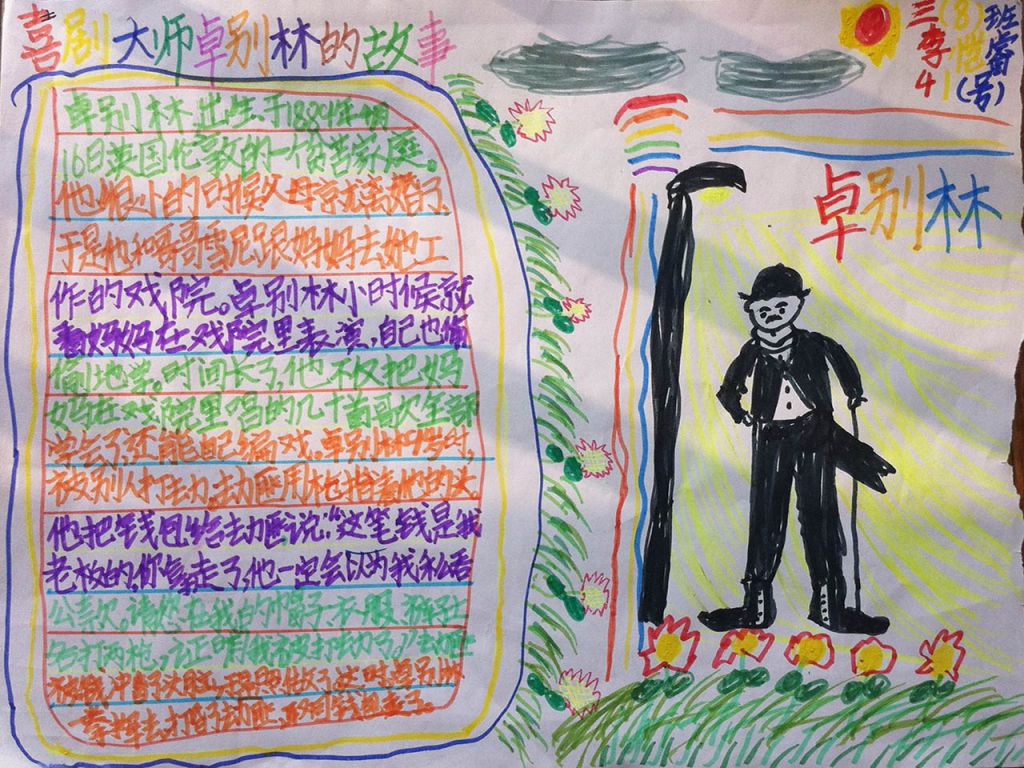 喜剧大师卓别林的故事
三(8)班
李恺睿
41(号)
卓别林
卓别林出生于1889年4月
16日英国伦敦的一个贫苦家庭。
他很小的时候父母亲就离婚了,
于是他和哥哥雪尼跟妈妈去她工
作的戏院。卓别林小时候就
看妈妈在戏院里表演,自己也偷
偷地学。时间长了,他不仅把妈
妈在戏院里唱的几十首歌次全部
学会了,还能自己编戏。卓别林
被别人打劫,劫匪用枪指着他的头,
他把钱包给劫匪说:“这笔钱是我
老板的,你拿走了,他一定会以为我私吞
公款,请您在我的帽子
打两枪,证明我被打劫了。”劫匪
卓别林
拿